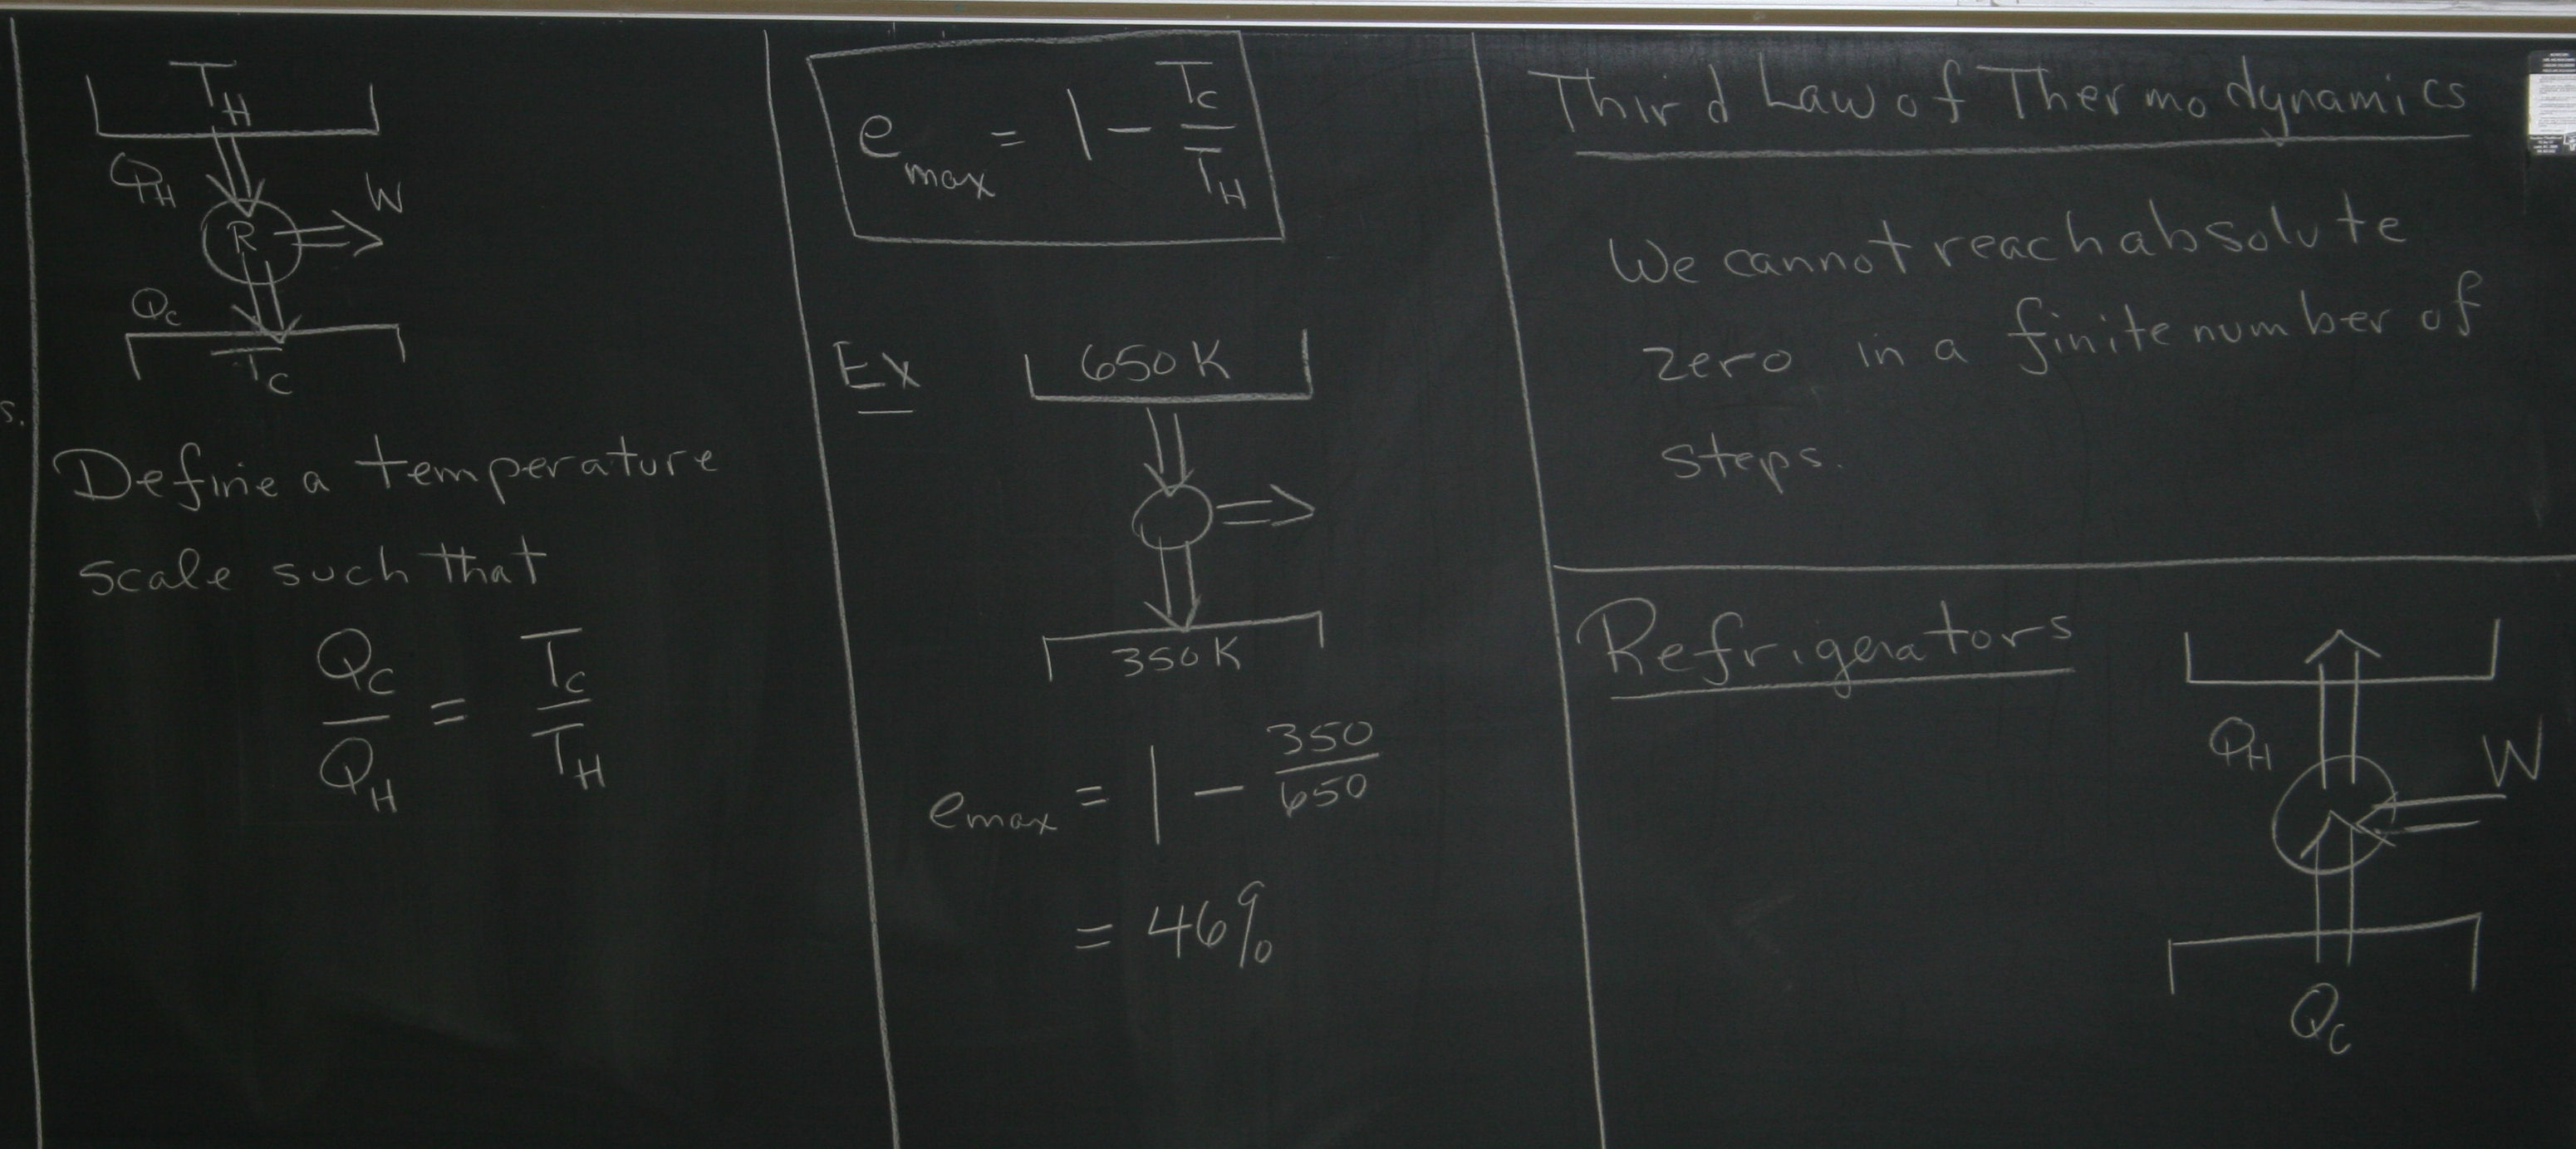 s.
T_H
Q_H
W
R
Q_C
T_C
Define a temperature
scale such that
Q_C/Q_H = T_C/T_H
e_max = 1 - T_C/T_H
Ex
650 K
350 K
e_max = 1 - 350/650
= 46%
Third Law of Thermodynamics
We cannot reach absolute
zero in a finite number of
steps.
Refrigerators
Q_H
W
Q_C